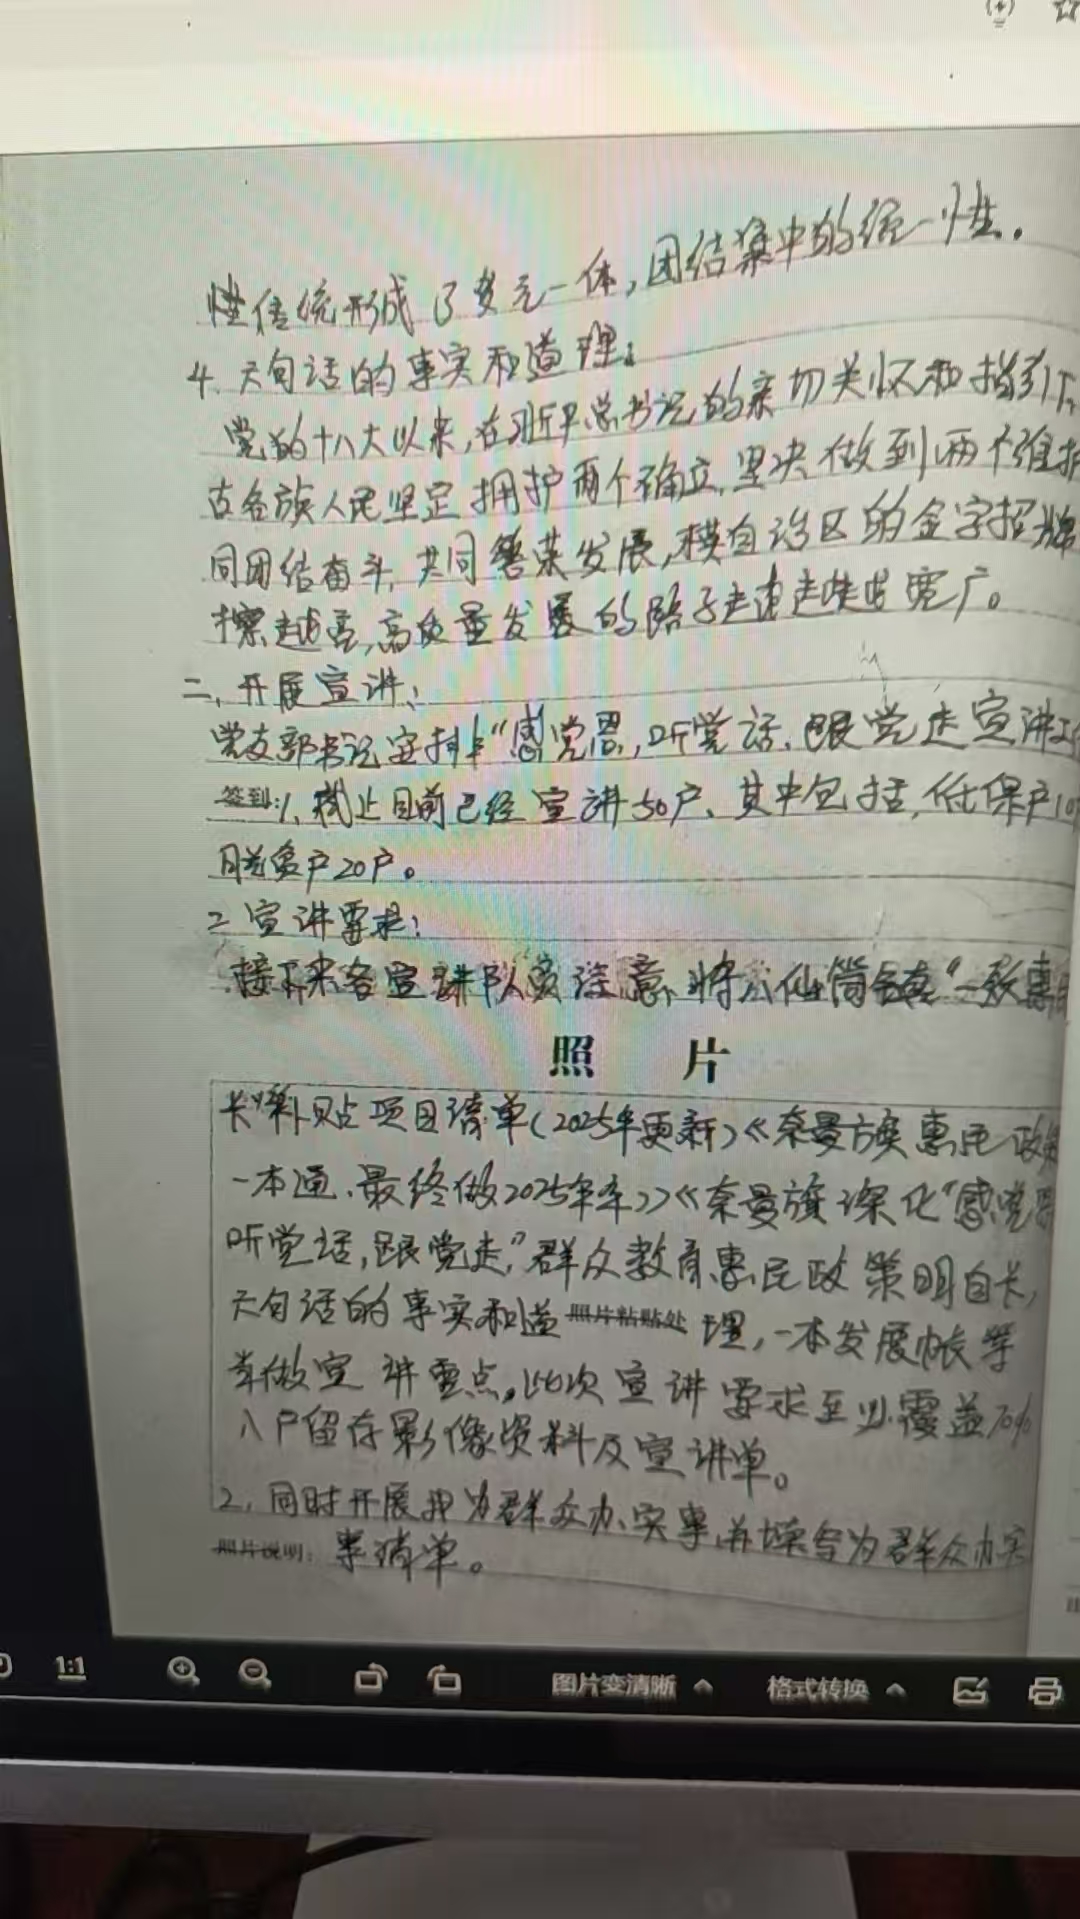 性传统形成了多元一体,团结集中的统一性.
4.六句话的事实和道理:
党的十八大以来,在习近平总书记的亲切关怀和指引下,
古各族人民坚定拥护两个确立,坚决做到两个维护
同团结奋斗,共同繁荣发展,模自治区的金字招牌
擦越亮,高质量发展的路子走越宽广。
二,开展宣讲:
党支部书记安排"感党恩,听党话、跟党走宣讲
签到:1、截止目前已经宣讲50户、其中包括,低保户10
脱贫户20户。
2 宣讲要求:
接下来各宣讲队员注意,将八仙筒镇"一
照 片
补贴项目清单(2025年更新)《奈曼旗惠民政
一本通、最终做2025年本》《奈曼旗深化"感党恩
听党话,跟党走"群众教育惠民政策明白卡,
六句话的事实和道 照片粘贴处 理,一本发展帐等
做宣讲重点,此次宣讲要求至少覆盖70%
入户留存影像资料及宣讲单。
2,同时开展我为群众办实事,并填写为群众办实
照片说明: 事清单。
1:1
图片变清晰 格式转换